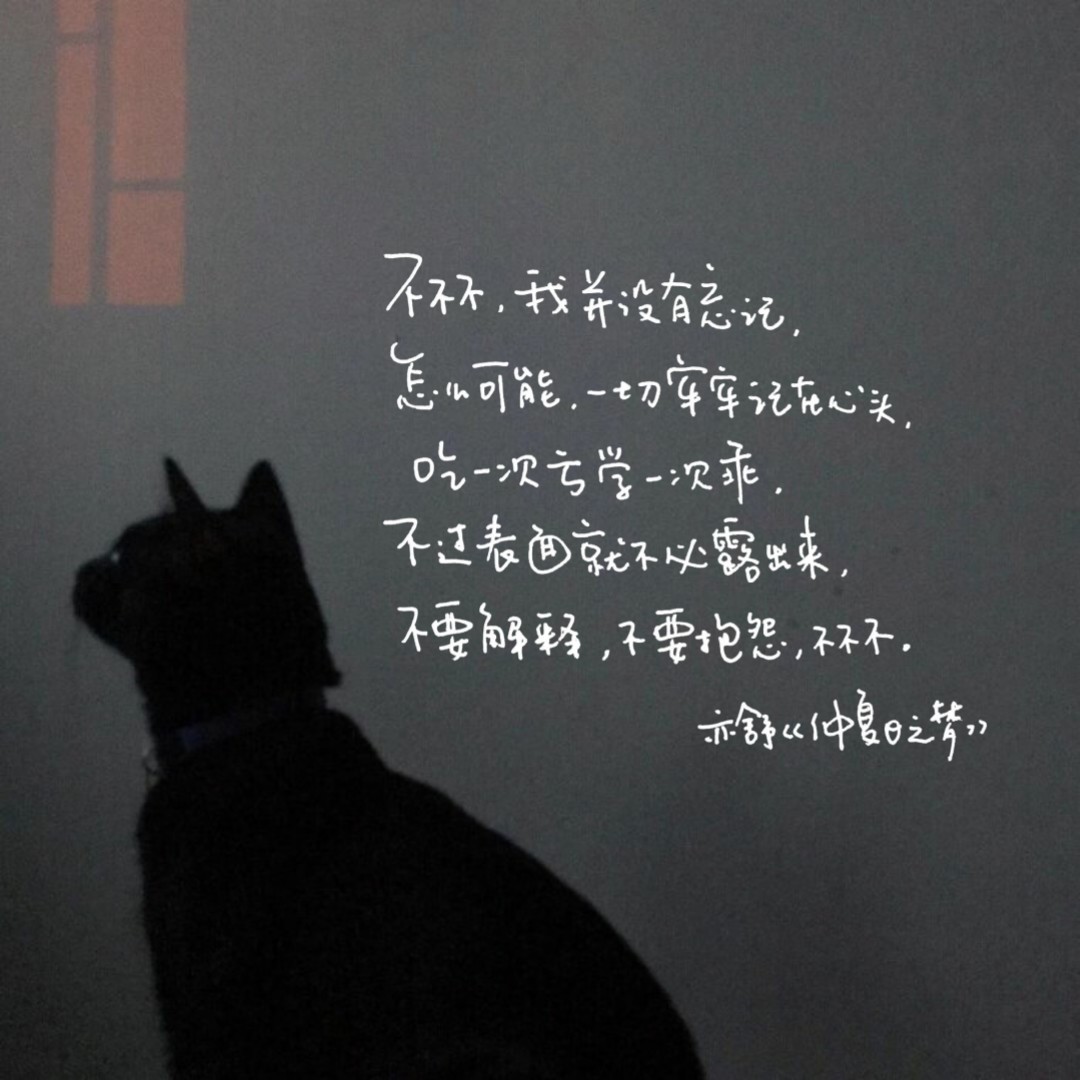 不不不，我并没有忘记，
怎么可能，一切牢牢记在心头，
吃一次亏学一次乖，
不过表面就不必露出来，
不要解释，不要抱怨，不不不。
亦舒《仲夏日之梦》